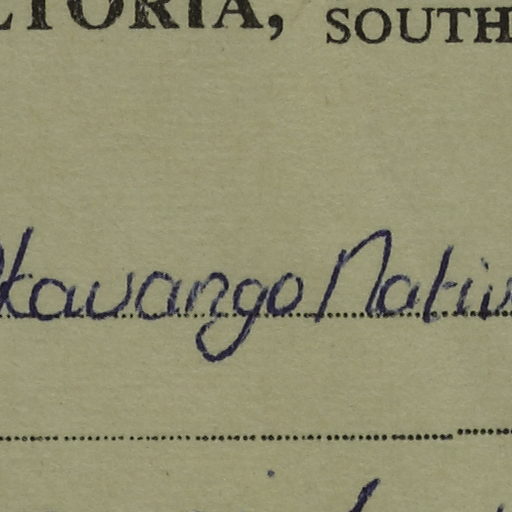 ETORIA, SOUTH
Okavango Nativ